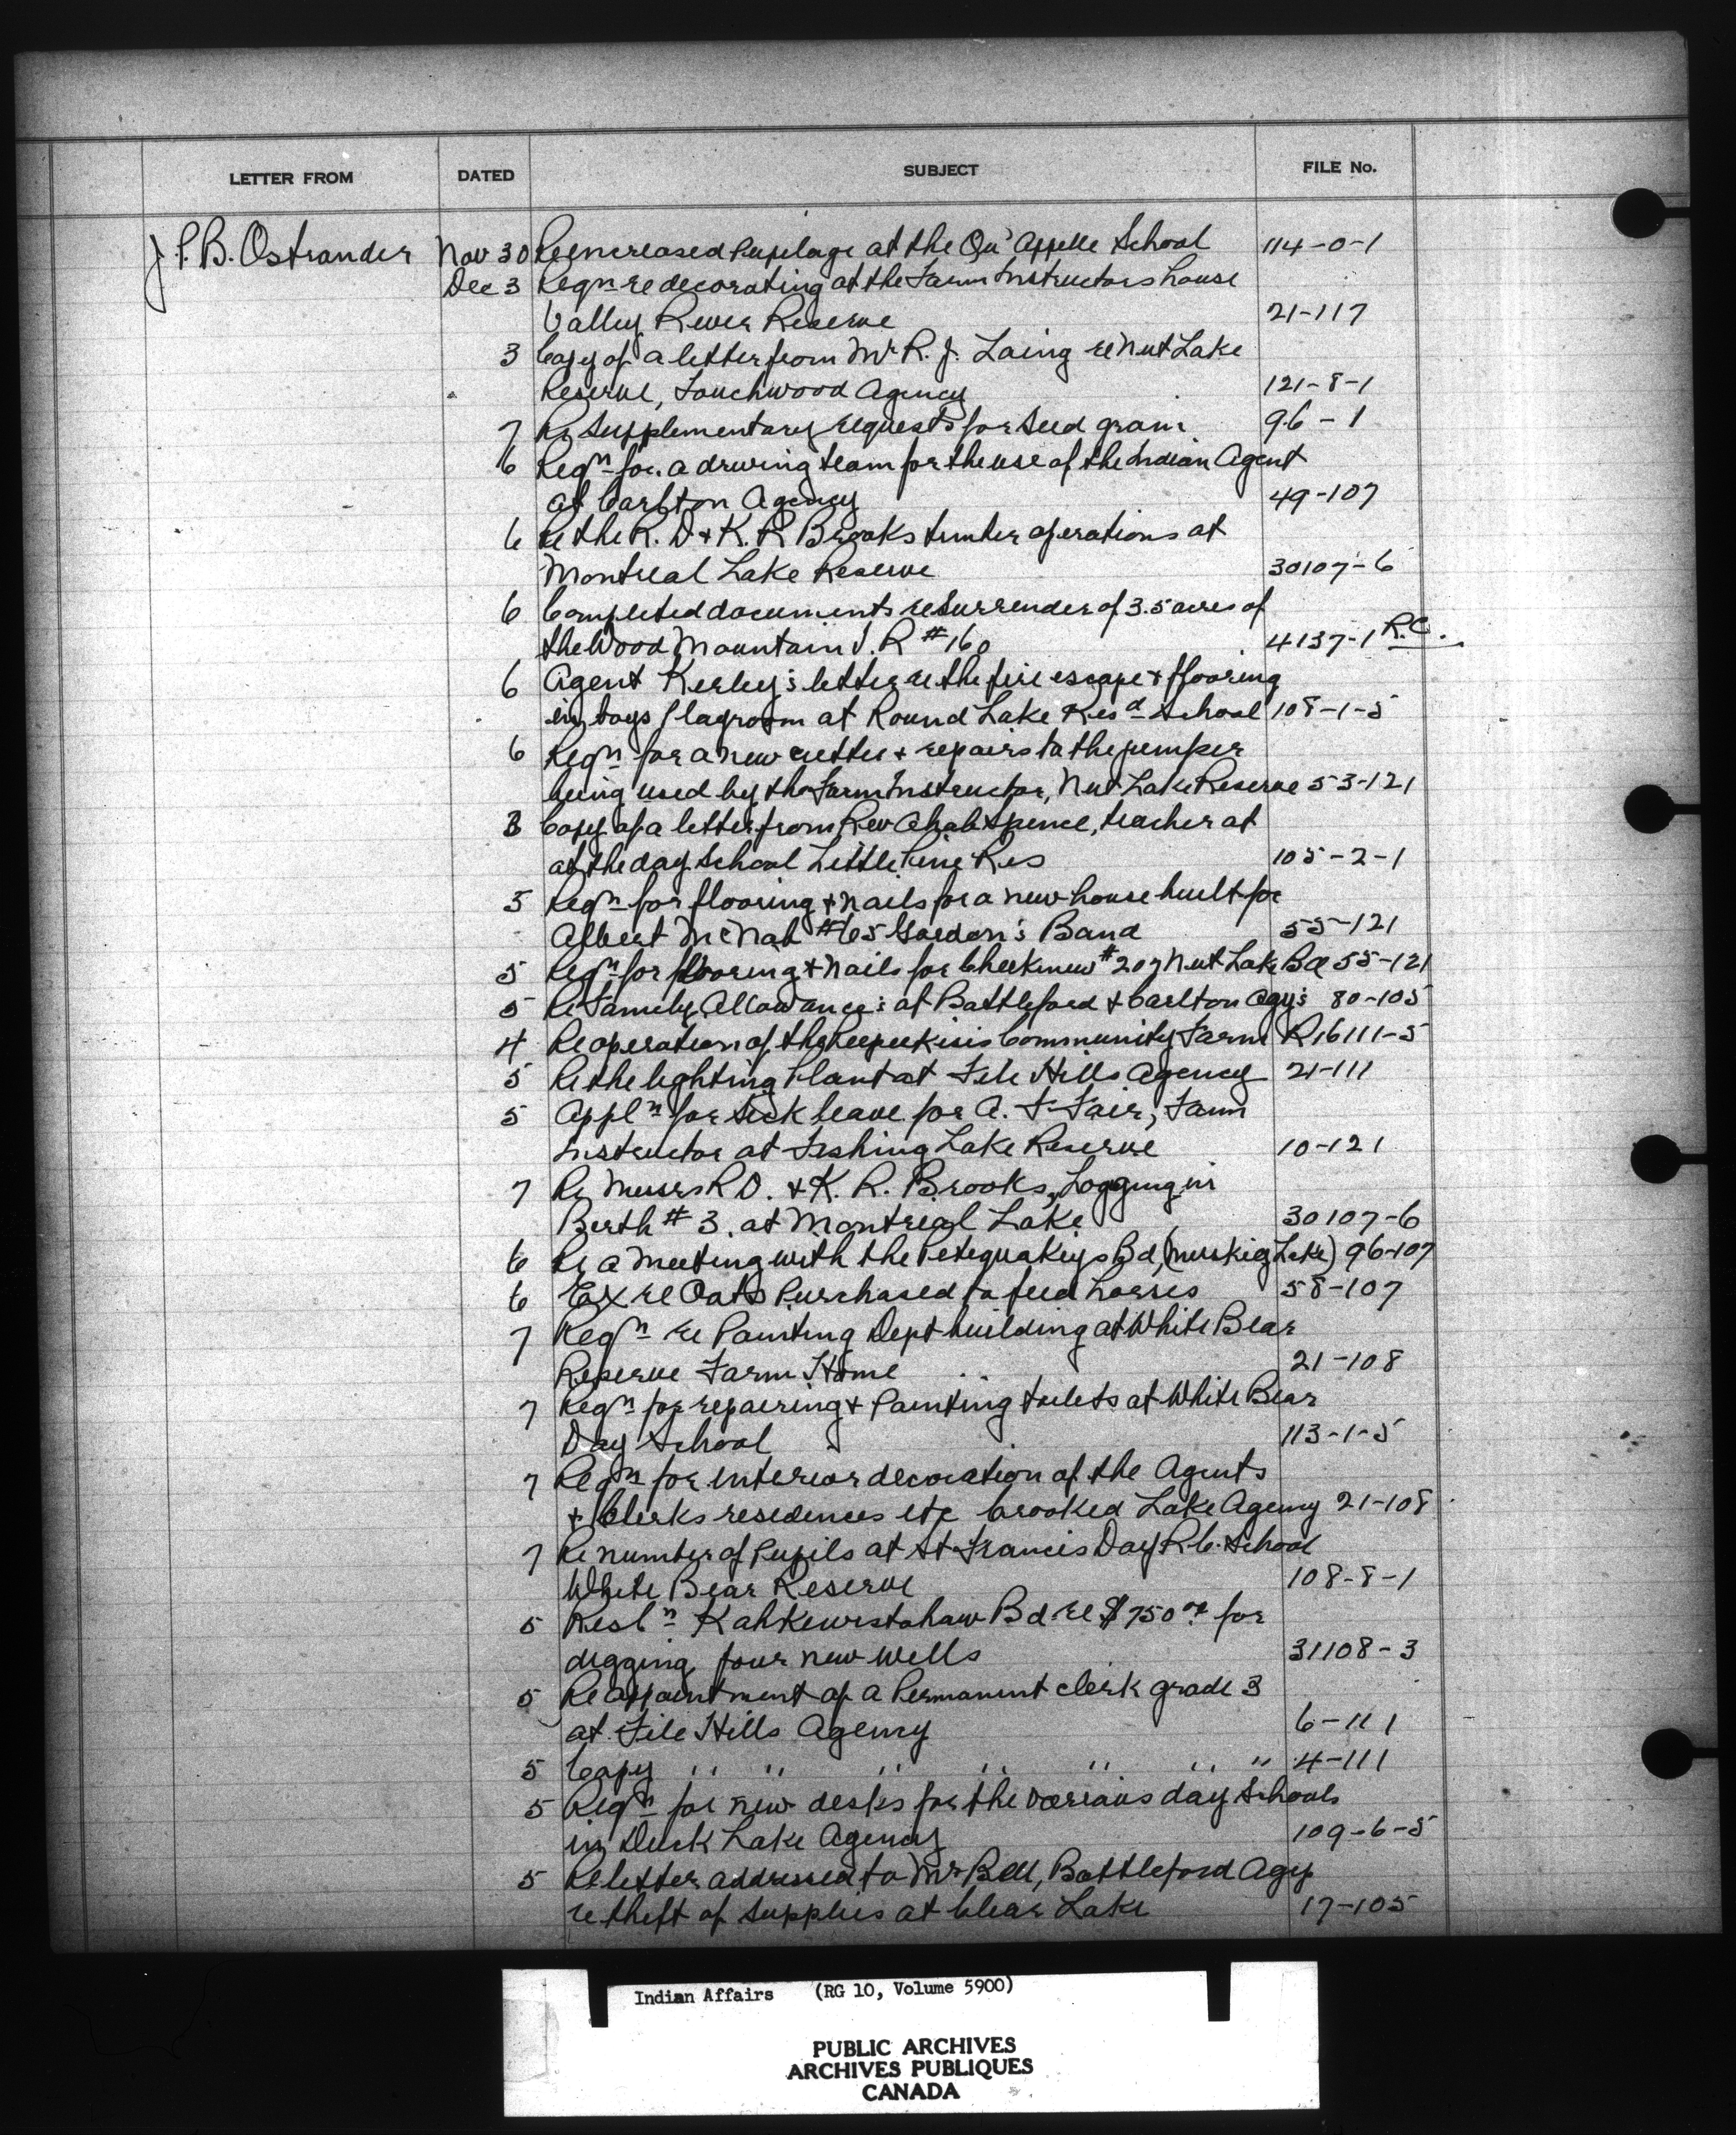 LETTER FROM DATED SUBJECT FILE No.
J.P.B. Ostrander Nov 30 Re increased Pupilage at the Qu'Appelle School 114-0-1
Dec 3 Reqn re decorating at the Farm Instructors house
Valley River Reserve 21-117
3 Copy of a letter from Mr R. J. Laing re Nut Lake
Reserve, Touchwood Agency 121-8-1
7 Re Supplementary requests for Seed grain 96-1
6 Reqn for a driving team for the use of the Indian Agent
at Carlton Agency 49-107
6 Re the R. D. & K. R Brooks timber operations at
Montreal Lake Reserve 30107-6
6 Completed documents re Surrender of 3.5 acres of
the Wood Mountain I. R #160 4137-1 R.C.
6 Agent Kerley's letter re the fire escape & flooring
in boys playroom at Round Lake Resd School 108-1-5
6 Reqn for a new cutter & repairs to the jumper
being used by the Farm Instructor, Nut Lake Reserve 53-121
3 Copy of a letter from Rev Ahab Spence, teacher at
at the day School Little Pine Res 105-2-1
5 Reqn for flooring & nails for a new house built for
Albert McNab #65 Gordon's Band 55-121
5 Reqn for flooring & nails for #207 Nut Lake Bd 55-121
5 Re Family Allowance's at Battleford & Carlton Agy's 80-105
4 Re operation of the Peepeekisis Community Farm R16111-5
5 Re the lighting Plant at File Hills Agency 21-111
5 Appln for Sick leave for A. F Fair, Farm
Instructor at Fishing Lake Reserve 10-121
7 Re Messrs R D. & K. R. Brooks, Logging in
Berth #3. at Montreal Lake 30107-6
6 Re a meeting with the Petequakeys Bd, (Muskeg Lake) 96-107
6 Ex re Oats Purchased to feed horses 58-107
7 Reqn re Painting Dept building at White Bear
Reserve Farm Home 21-108
7 Reqn for repairing & Painting toilets at White Bear
Day School 113-1-5
7 Reqn for interior decoration of the Agents
& Clerks residences etc Crooked Lake Agency 21-108
7 Re number of Pupils at St Francis Day R.C. School
White Bear Reserve 108-8-1
5 Resln Kahkewistahaw Bd re $750.00 for
digging four new wells 31108-3
5 Re appointment of a Permanent clerk grade 3
at File Hills Agency 6-111
5 Copy " " " " " " " 4-111
5 Reqn for new desks for the various day Schools
in Duck Lake Agency 109-6-5
5 Re letter addressed to Mr Bell, Battleford Agy
re theft of supplies at Clear Lake 17-105
Indian Affairs (RG 10, Volume 5900)
PUBLIC ARCHIVES
ARCHIVES PUBLIQUES
CANADA